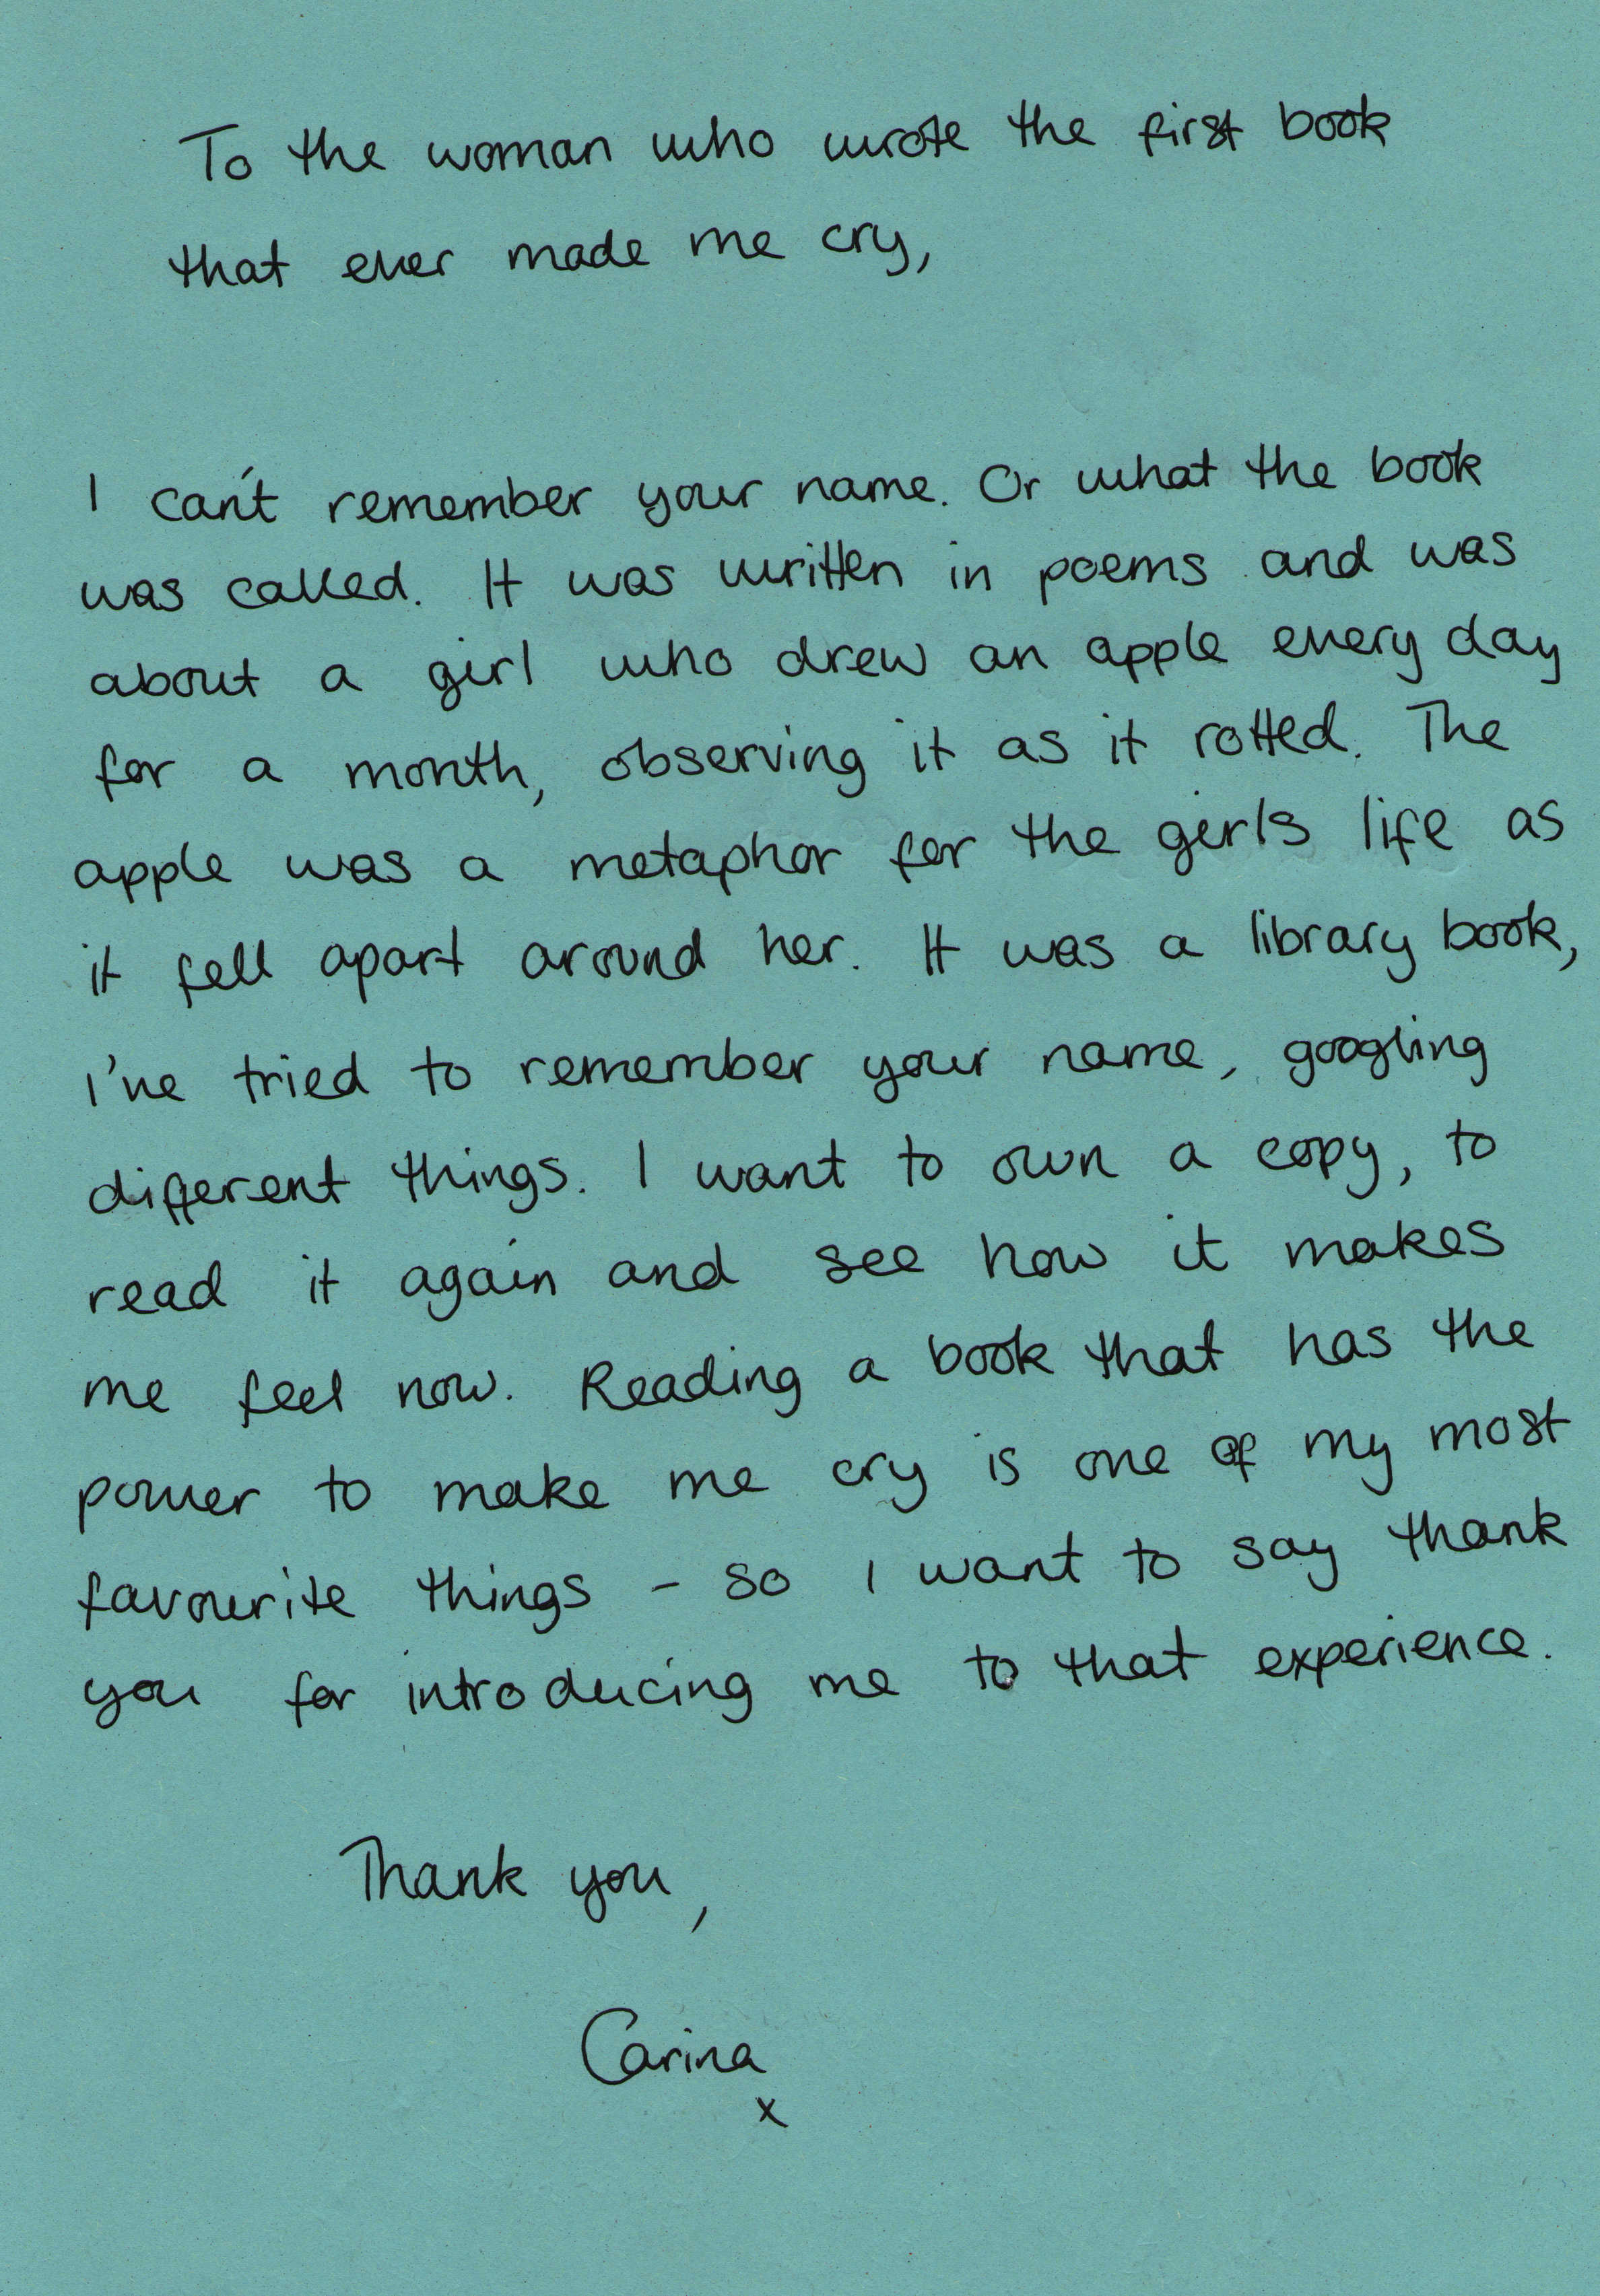 To the woman who wrote the first book
that ever made me cry,
I can't remember your name. Or what the book
was called. It was written in poems and was
about a girl who drew an apple every day
for a month, observing it as it rotted. The
apple was a metaphor for the girls life as
it fell apart around her. It was a library book,
I've tried to remember your name, googling
different things. I want to own a copy, to
read it again and see how it makes
me feel now. Reading a book that has the
power to make me cry is one of my most
favourite things - so I want to say thank
you for introducing me to that experience.
Thank you,
Carina
x